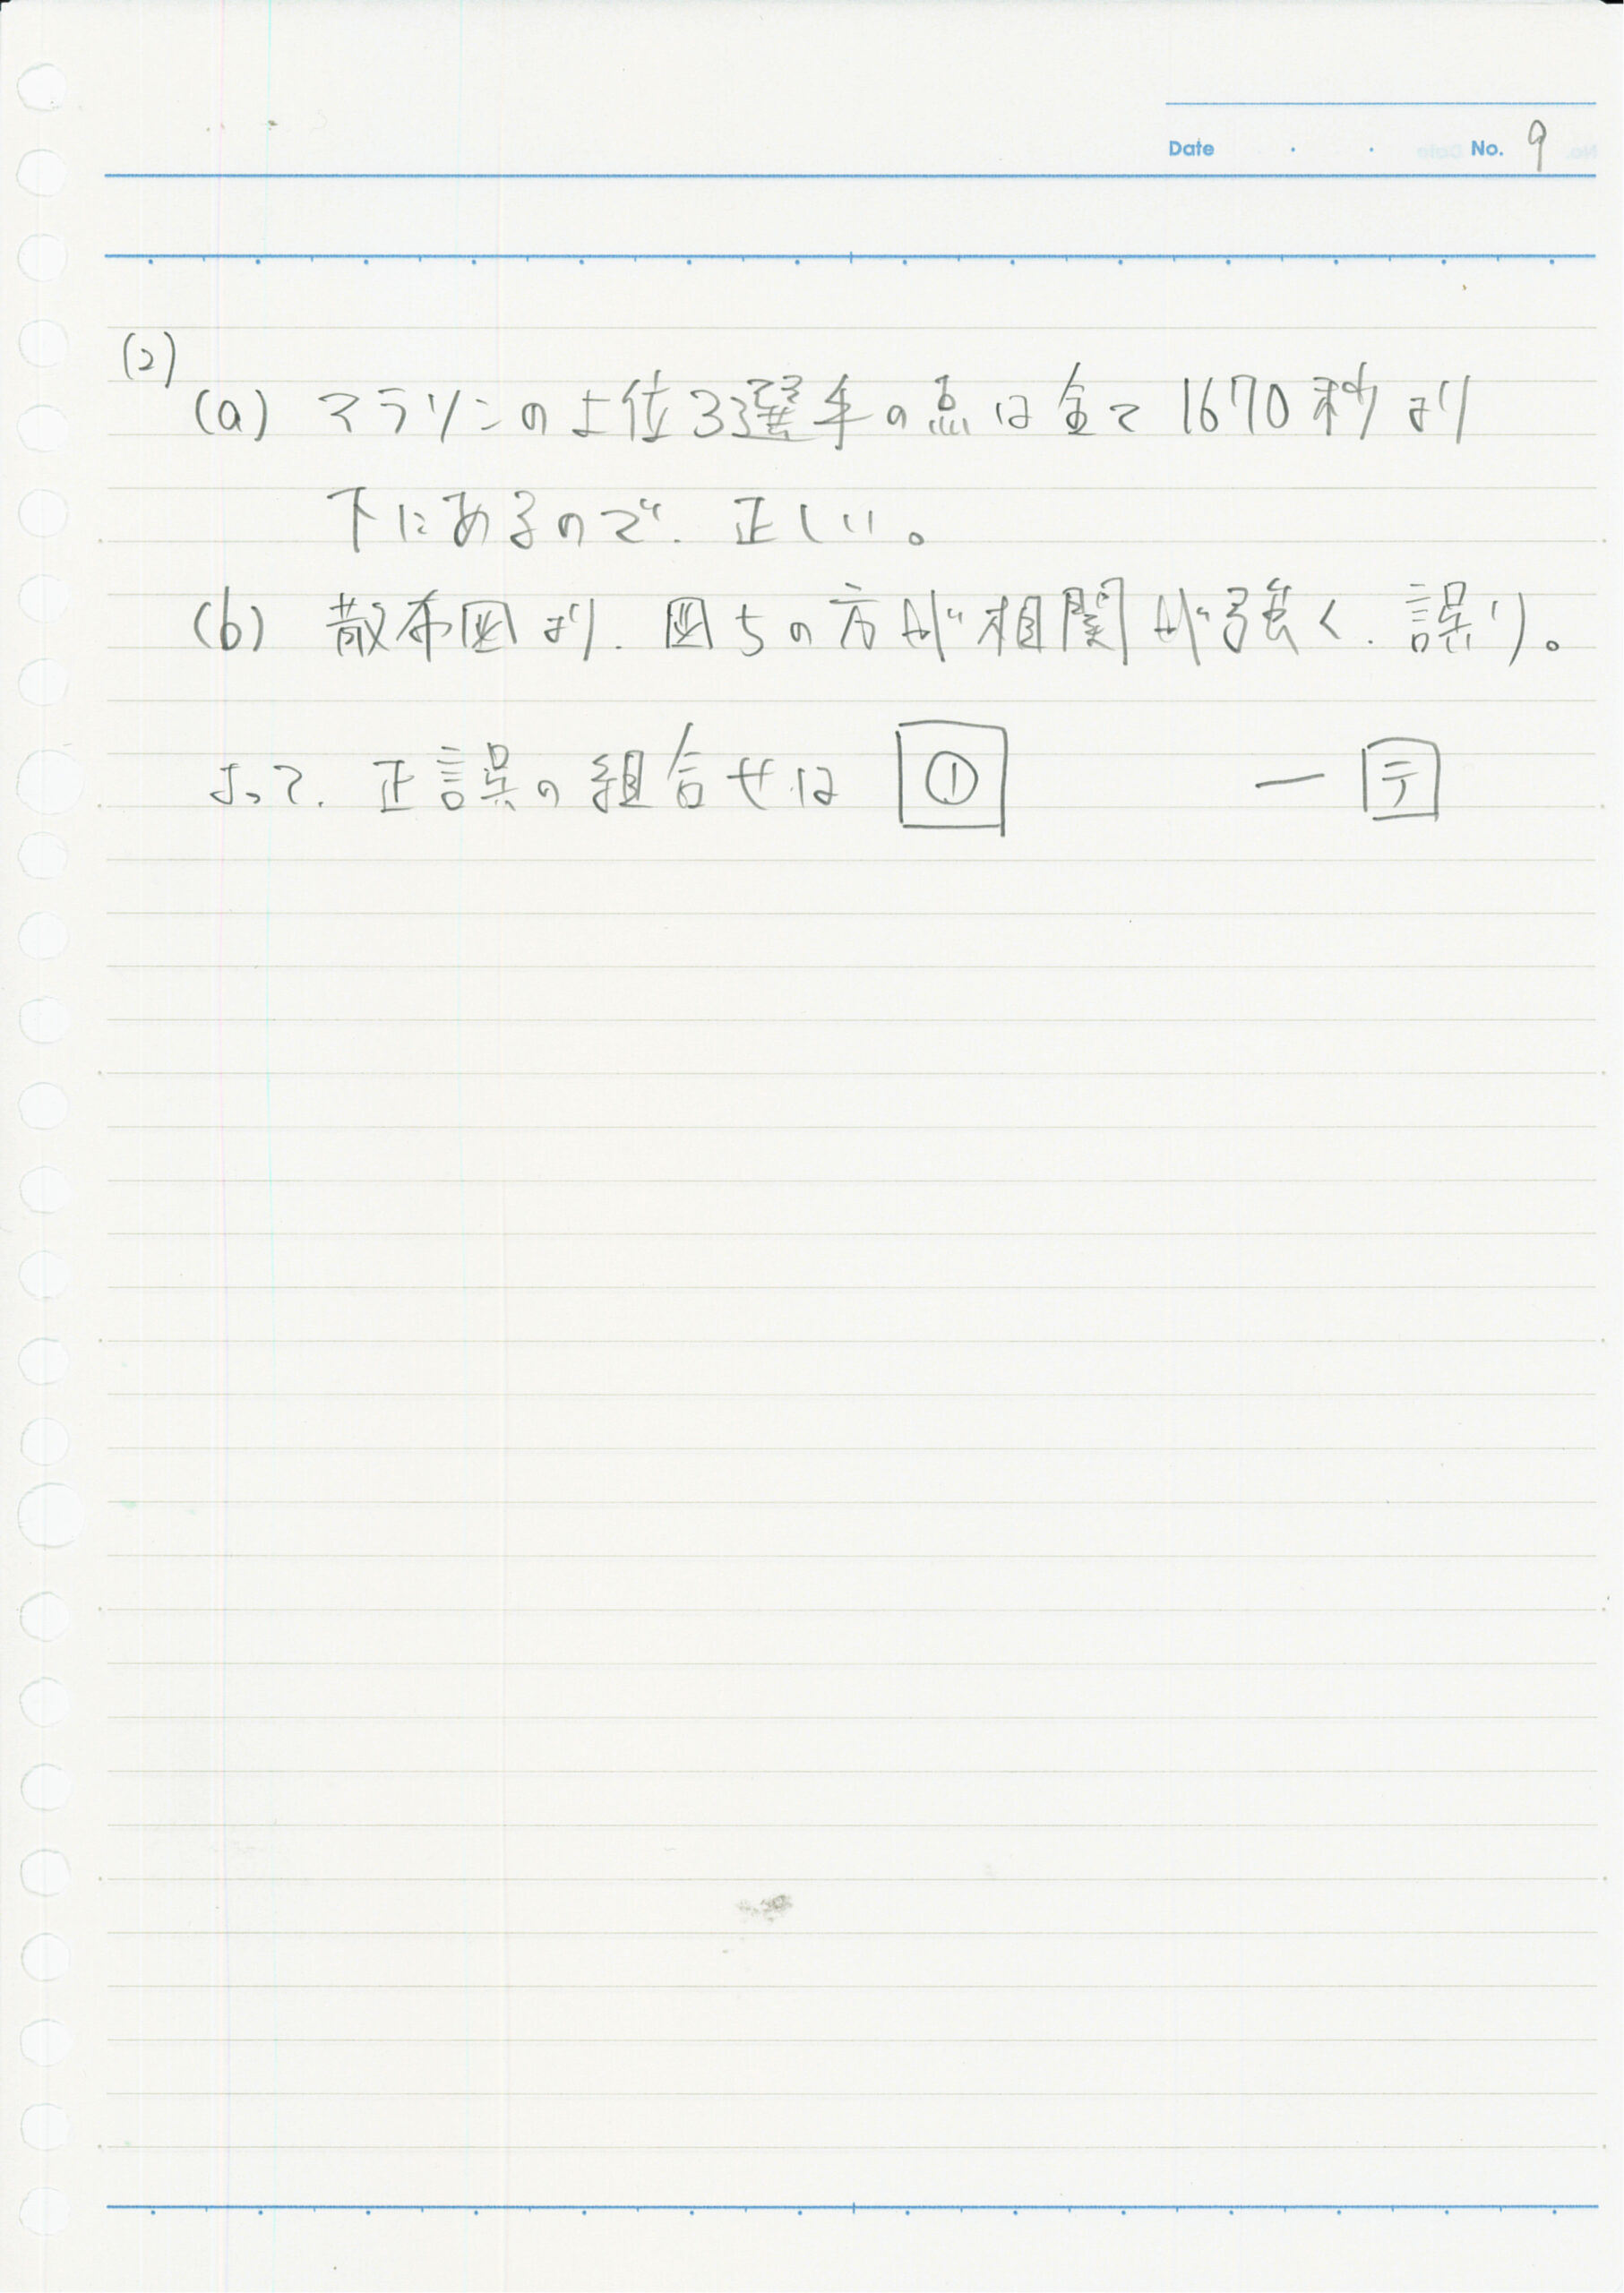 Date ・ ・ No. 9
(2)
(a) マラソンの上位3選手の点は全て1670秒より
下にあるので. 正しい。
(b) 散布図より. 図5の方が相関が強く. 誤り。
よって. 正誤の組合せは ① ー テ